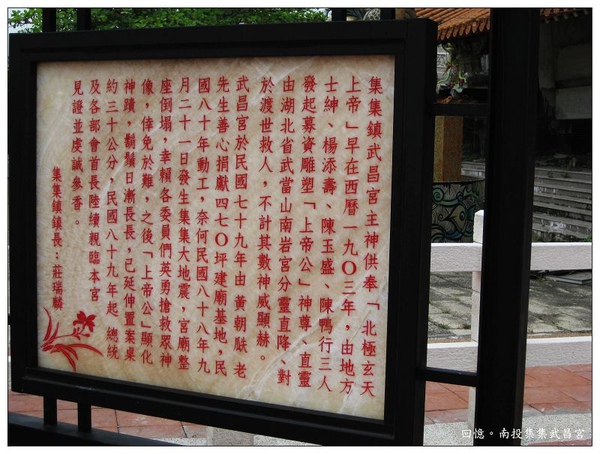 集集鎮武昌宮主神供奉「北極玄天
上帝」早在西曆一九〇三年，由地方
士紳、楊添壽、陳玉盛、陳鴨行三人
發起募資雕塑「上帝公」神尊，直靈
由湖北省武當山南岩宮分靈直隆、對
於渡世救人，不計其數神威顯赫。
武昌宮於民國七十九年由黃朝 老
先生善心捐獻四七〇坪建廟基地，民
國八十年動工，奈何民國八十八年九
月二十一日發生集集大地震，宮廟整
座倒塌，幸賴各委員們英勇搶救眾神
像，倖免於難，之後「上帝公」顯化
神蹟，鬍鬚日漸長長，已延伸置案桌
約三十公分，民國八十九年起，總統
及各部會首長陸續親臨本宮
見證並虔誠參香。
集集鎮鎮長：莊瑞麟
回憶。南投集集武昌宮